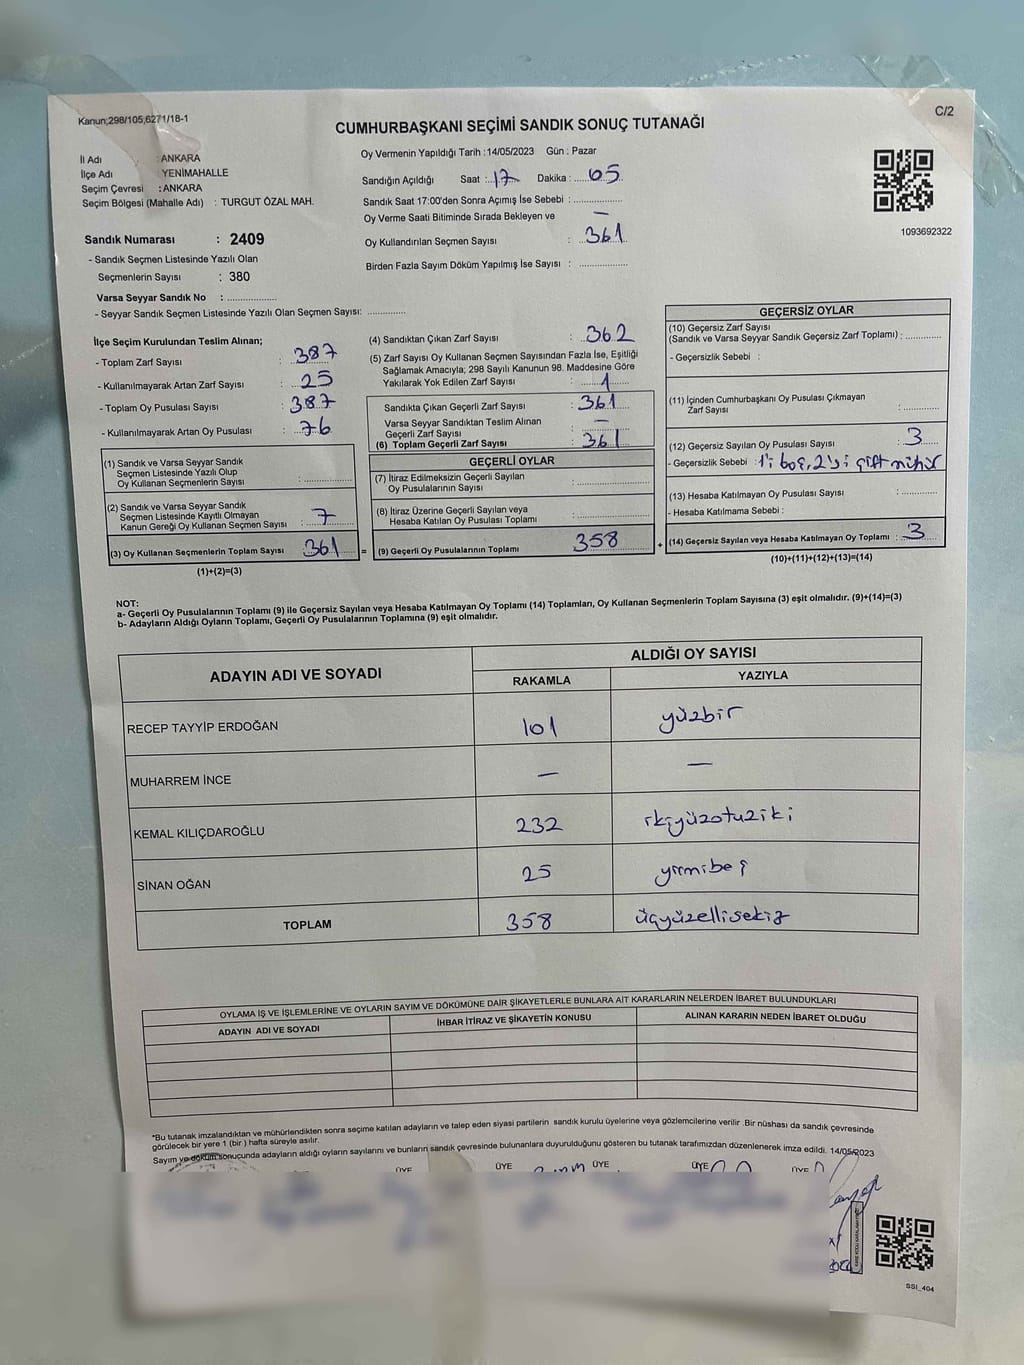 Kanun;298/105;6271/18-1
C/2
CUMHURBAŞKANI SEÇİMİ SANDIK SONUÇ TUTANAĞI
İl Adı : ANKARA
İlçe Adı YENİMAHALLE
Seçim Çevresi : ANKARA
Seçim Bölgesi (Mahalle Adı) : TURGUT ÖZAL MAH.
Sandık Numarası : 2409
- Sandık Seçmen Listesinde Yazılı Olan
Seçmenlerin Sayısı : 380
Varsa Seyyar Sandık No : ..................
- Seyyar Sandık Seçmen Listesinde Yazılı Olan Seçmen Sayısı: ..............
Oy Vermenin Yapıldığı Tarih :14/05/2023 Gün : Pazar
Sandığın Açıldığı Saat : 17 Dakika : 05
Sandık Saat 17:00'den Sonra Açımış İse Sebebi : ..................
Oy Verme Saati Bitiminde Sırada Bekleyen ve —
Oy Kullandırılan Seçmen Sayısı : 361
Birden Fazla Sayım Döküm Yapılmış İse Sayısı : ..................
1093692322
İlçe Seçim Kurulundan Teslim Alınan;
- Toplam Zarf Sayısı : 387
- Kullanılmayarak Artan Zarf Sayısı : 25
- Toplam Oy Pusulası Sayısı : 387
- Kullanılmayarak Artan Oy Pusulası : 76
(1) Sandık ve Varsa Seyyar Sandık
Seçmen Listesinde Yazılı Olup
Oy Kullanan Seçmenlerin Sayısı : ..................
(2) Sandık ve Varsa Seyyar Sandık
Seçmen Listesinde Kayıtlı Olmayan
Kanun Gereği Oy Kullanan Seçmen Sayısı : 7
(3) Oy Kullanan Seçmenlerin Toplam Sayısı 361
(1)+(2)=(3)
(4) Sandıktan Çıkan Zarf Sayısı : 362
(5) Zarf Sayısı Oy Kullanan Seçmen Sayısından Fazla İse, Eşitliği
Sağlamak Amacıyla; 298 Sayılı Kanunun 98. Maddesine Göre
Yakılarak Yok Edilen Zarf Sayısı : 1
Sandıkta Çıkan Geçerli Zarf Sayısı : 361
Varsa Seyyar Sandıktan Teslim Alınan
Geçerli Zarf Sayısı : —
(6) Toplam Geçerli Zarf Sayısı : 361
GEÇERLİ OYLAR
(7) İtiraz Edilmeksizin Geçerli Sayılan
Oy Pusulalarının Sayısı : ..................
(8) İtiraz Üzerine Geçerli Sayılan veya
Hesaba Katılan Oy Pusulası Toplamı : ..................
= (9) Geçerli Oy Pusulalarının Toplamı 358
GEÇERSİZ OYLAR
(10) Geçersiz Zarf Sayısı
(Sandık ve Varsa Seyyar Sandık Geçersiz Zarf Toplamı) : .............
- Geçersizlik Sebebi :
(11) İçinden Cumhurbaşkanı Oy Pusulası Çıkmayan
Zarf Sayısı : .............
(12) Geçersiz Sayılan Oy Pusulası Sayısı : 3
- Geçersizlik Sebebi : 1'i boş, 2'si çift mühür
(13) Hesaba Katılmayan Oy Pusulası Sayısı : .............
- Hesaba Katılmama Sebebi :
+ (14) Geçersiz Sayılan veya Hesaba Katılmayan Oy Toplamı : 3
(10)+(11)+(12)+(13)=(14)
NOT:
a- Geçerli Oy Pusulalarının Toplamı (9) ile Geçersiz Sayılan veya Hesaba Katılmayan Oy Toplamı (14) Toplamları, Oy Kullanan Seçmenlerin Toplam Sayısına (3) eşit olmalıdır. (9)+(14)=(3)
b- Adayların Aldığı Oyların Toplamı, Geçerli Oy Pusulalarının Toplamına (9) eşit olmalıdır.
ADAYIN ADI VE SOYADI
ALDIĞI OY SAYISI
RAKAMLA YAZIYLA
RECEP TAYYİP ERDOĞAN 101 yüzbir
MUHARREM İNCE — —
KEMAL KILIÇDAROĞLU 232 ikiyüzotuziki
SİNAN OĞAN 25 yirmibeş
TOPLAM 358 üçyüzellisekiz
OYLAMA İŞ VE İŞLEMLERİNE VE OYLARIN SAYIM VE DÖKÜMÜNE DAİR ŞİKAYETLERLE BUNLARA AİT KARARLARIN NELERDEN İBARET BULUNDUKLARI
ADAYIN ADI VE SOYADI İHBAR İTİRAZ VE ŞİKAYETİN KONUSU ALINAN KARARIN NEDEN İBARET OLDUĞU
*Bu tutanak imzalandıktan ve mühürlendikten sonra seçime katılan adayların ve talep eden siyasi partilerin sandık kurulu üyelerine veya gözlemcilerine verilir .Bir nüshası da sandık çevresinde
görülecek bir yere 1 (bir ) hafta süreyle asılır.
Sayım ve döküm sonuçunda adayların aldığı oyların sayılarını ve bunların sandık çevresinde bulunanlara duyurulduğunu gösteren bu tutanak tarafımızdan düzenlenerek imza edildi. 14/05/2023
ÜYE ÜYE ÜYE ÜYE ÜYE
SSI_404